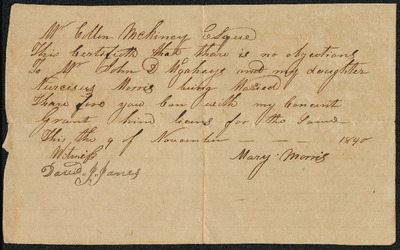 Mr Ellen McKiney Esquie
This Certifieth that thare is no objections
To Mr John D Mgaheys and my daughter
Narcissus Morris being Maried
Thare fore you Can with my Concent
Grant him licens for the Same
This the 9 of November — — — 1840
Witness Mary Morris
David J. Janes